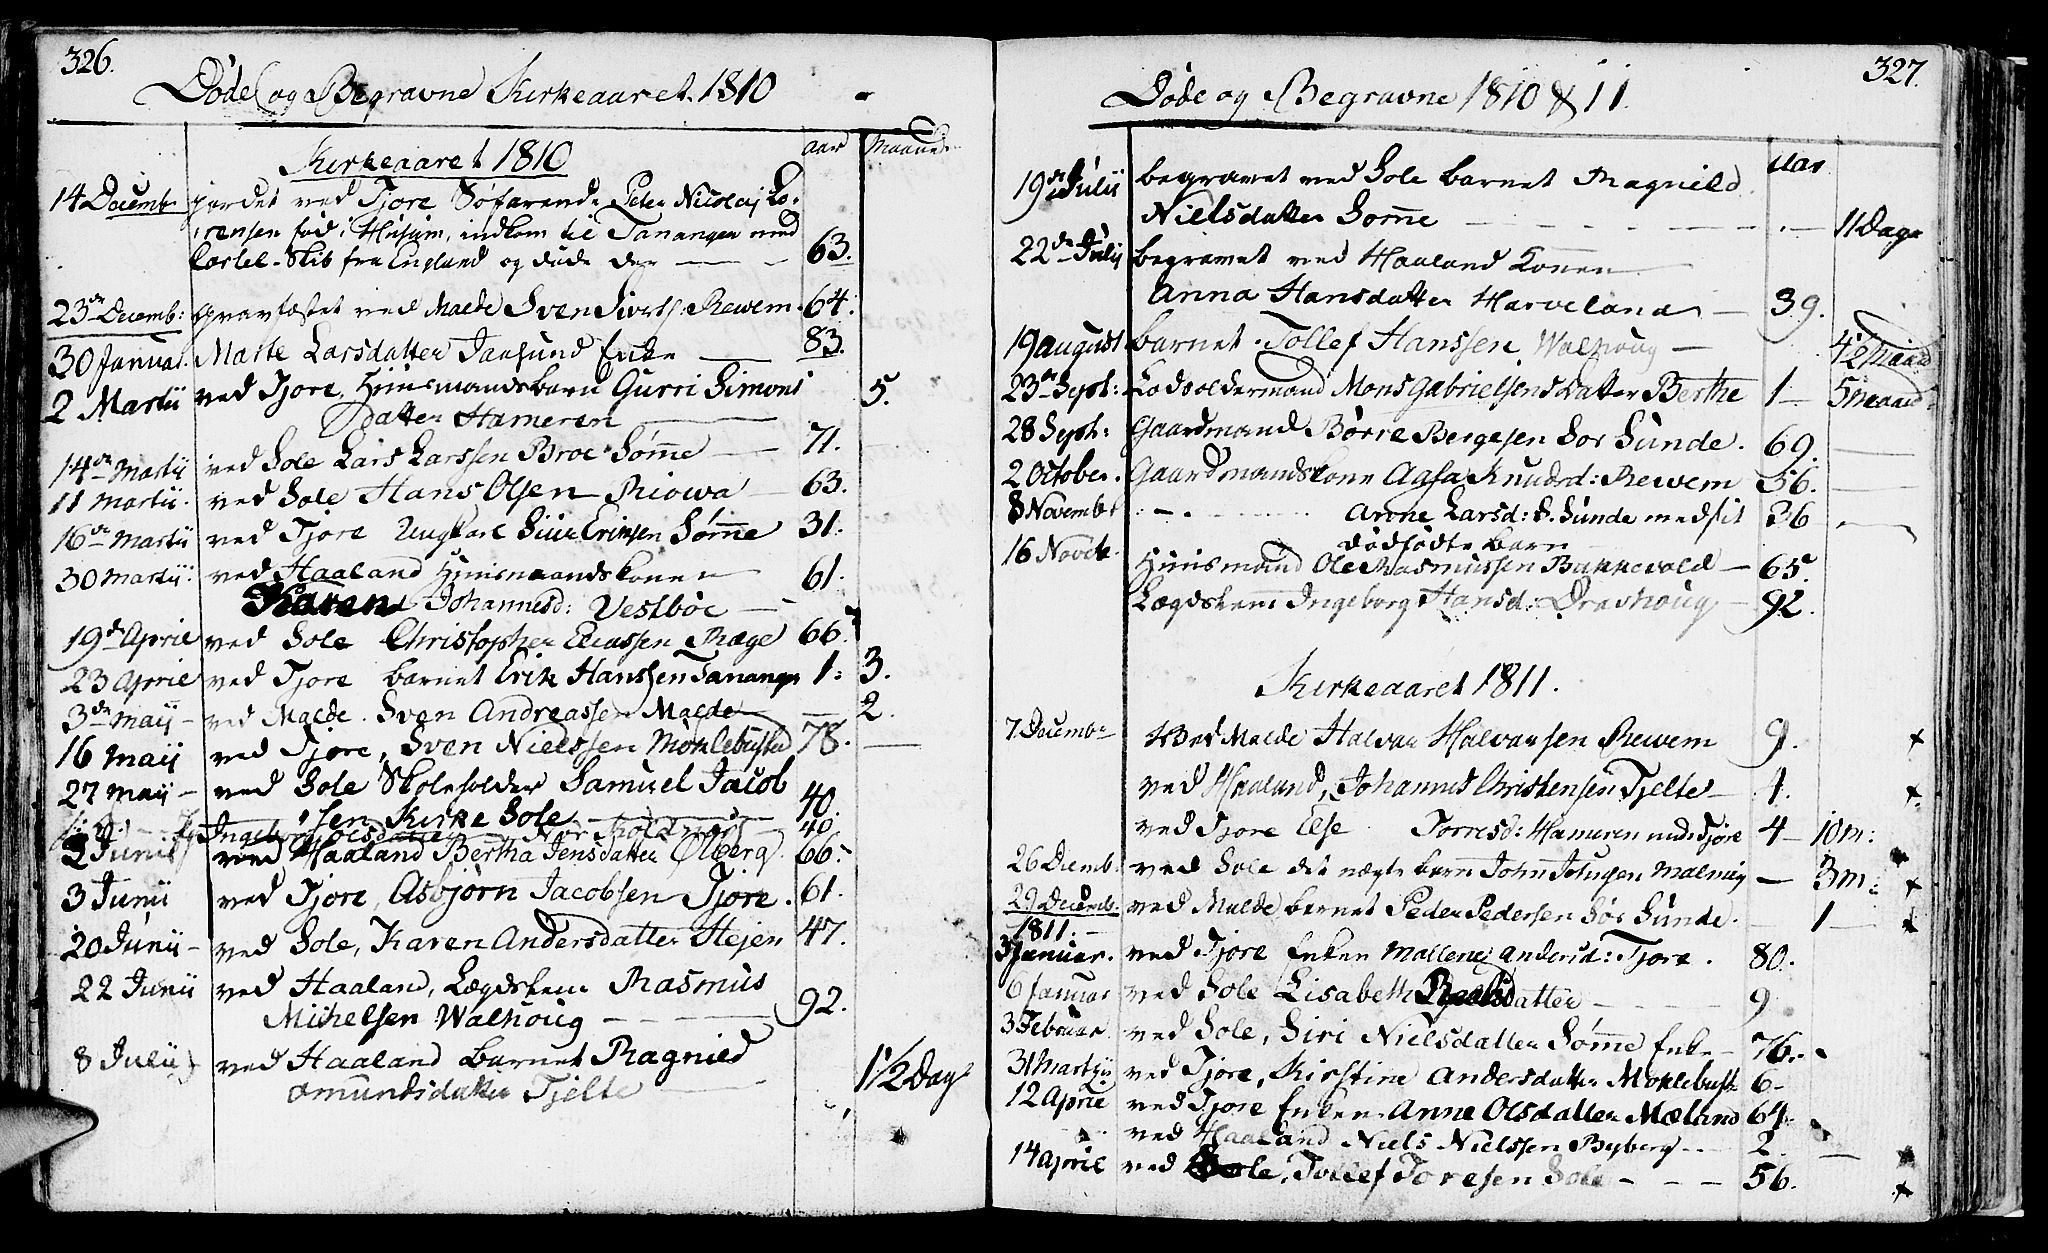 326.
Døde og Begravne Kirkeaaret 1810
Kirkeaaret 1810
aar Maaned
14 Decemb. jordet ved Tjore Søfarende Peter Nicolaj Lo-
rensen fød i Husum, indkom til Tananger med
Cartel-Skib fra England og døde der 63.
23de Decemb: gravfæstet ved Malde Sven Siverts: Rewem 64.
30 Januar. Marte Larsdatter Jaasund Enke 83.
2 Martii ved Tjore, Huusmandsbarn Gurri Simons 5.
Datter Hameren
14de Martii ved Sole Lars Larssen Broe Sømme 71.
11 Martii. ved Sole Hans Olsen Riowa 63.
16de Martii ved Tjore Ungkarl Siur Eriksen Sømme 31.
30 Martii. ved Haaland Huusmandskonen 61.
Karen Johannesd: Vestbøe
19de April ved Sole Christopher Eliassen Ræge 66.
23 April ved Tjore barnet Erik Hanssen Tananger 1. 3.
3de Maij ved Malde. Sven Andreassen Malde 2.
16 Maij ved Tjore, Sven Nielssen Møklebusted 78.
27 Maij ved Sole Skoleholder Samuel Jacob
sen Kirke Sole 40.
Ingeborg Olsdatter 40.
2 Junii ved Haaland Bertha Jensdatter Ølberg 66.
3 Junii ved Tjore, Asbjørn Jacobsen Tjore. 61.
20 Junii ved Sole, Karen Andersdatter Stejen 47.
22 Junii ved Haaland, Lægdslem Rasmus
Michelsen Walhoug 92.
8 Julii ved Haaland barnet Ragnild
Amundsdatter Tjelte 1 1/2 Dag
327.
Døde og Begravne 1810 & 11.
Aar
19de Julii begravet ved Sole barnet Magnild
Nielsdatter Somme 11 Dage
22de Julij begravet ved Haaland Konen
Anna Hansdatter Harveland 39.
19 august barnet Tollef Hanssen Walhoug 4 1/2 Maaned
23de Septr: Lodsoldermand Mons Gabrielsens datter Berthe 1 5 maaned
28 Septr: Gaardmand Børre Bergesen Sør Sunde. 69.
2 October. Gaardmandskone Aasa Knudsd: Rewem 56.
8 Novembr Anne Larsd: S. Sunde med sit 36
dødfødte barn
16 Novbr. Huusmand Ole Rasmussen Bakkevold 65.
Lægdslem Ingeborg Hansd: 92.
Kirkeaaret 1811.
7 Decembr Ved Malde Halvar Halvarsen Rewem 9.
ved Haaland, Johannes Christensen Tjelte 1.
ved Tjore Else Torresd: Hameren Tjore 4 10 m:
26 Decemb: ved Sole det uægte barn John 3 m:
29 Decemb. ved Malde barnet Peder Pedersen Sør Sunde 1
1811.
3 Januar. ved Tjore Enken Mallene Andersd: Tjore. 80.
6 Januar ved Sole Lisabeth datter 9
3 Februar ved Sole, Siri Nielsdatter Sømme Enke 76.
31 Martij ved Tjore, Kirstine Andersdatter Moklebust 6
12 April ved Tjore Enken Anne Olsdatter Mæland 64.
ved Haaland Niels Nielssen Byberg 2.
14 April ved Sole, Tollef Toresen Sole 56.